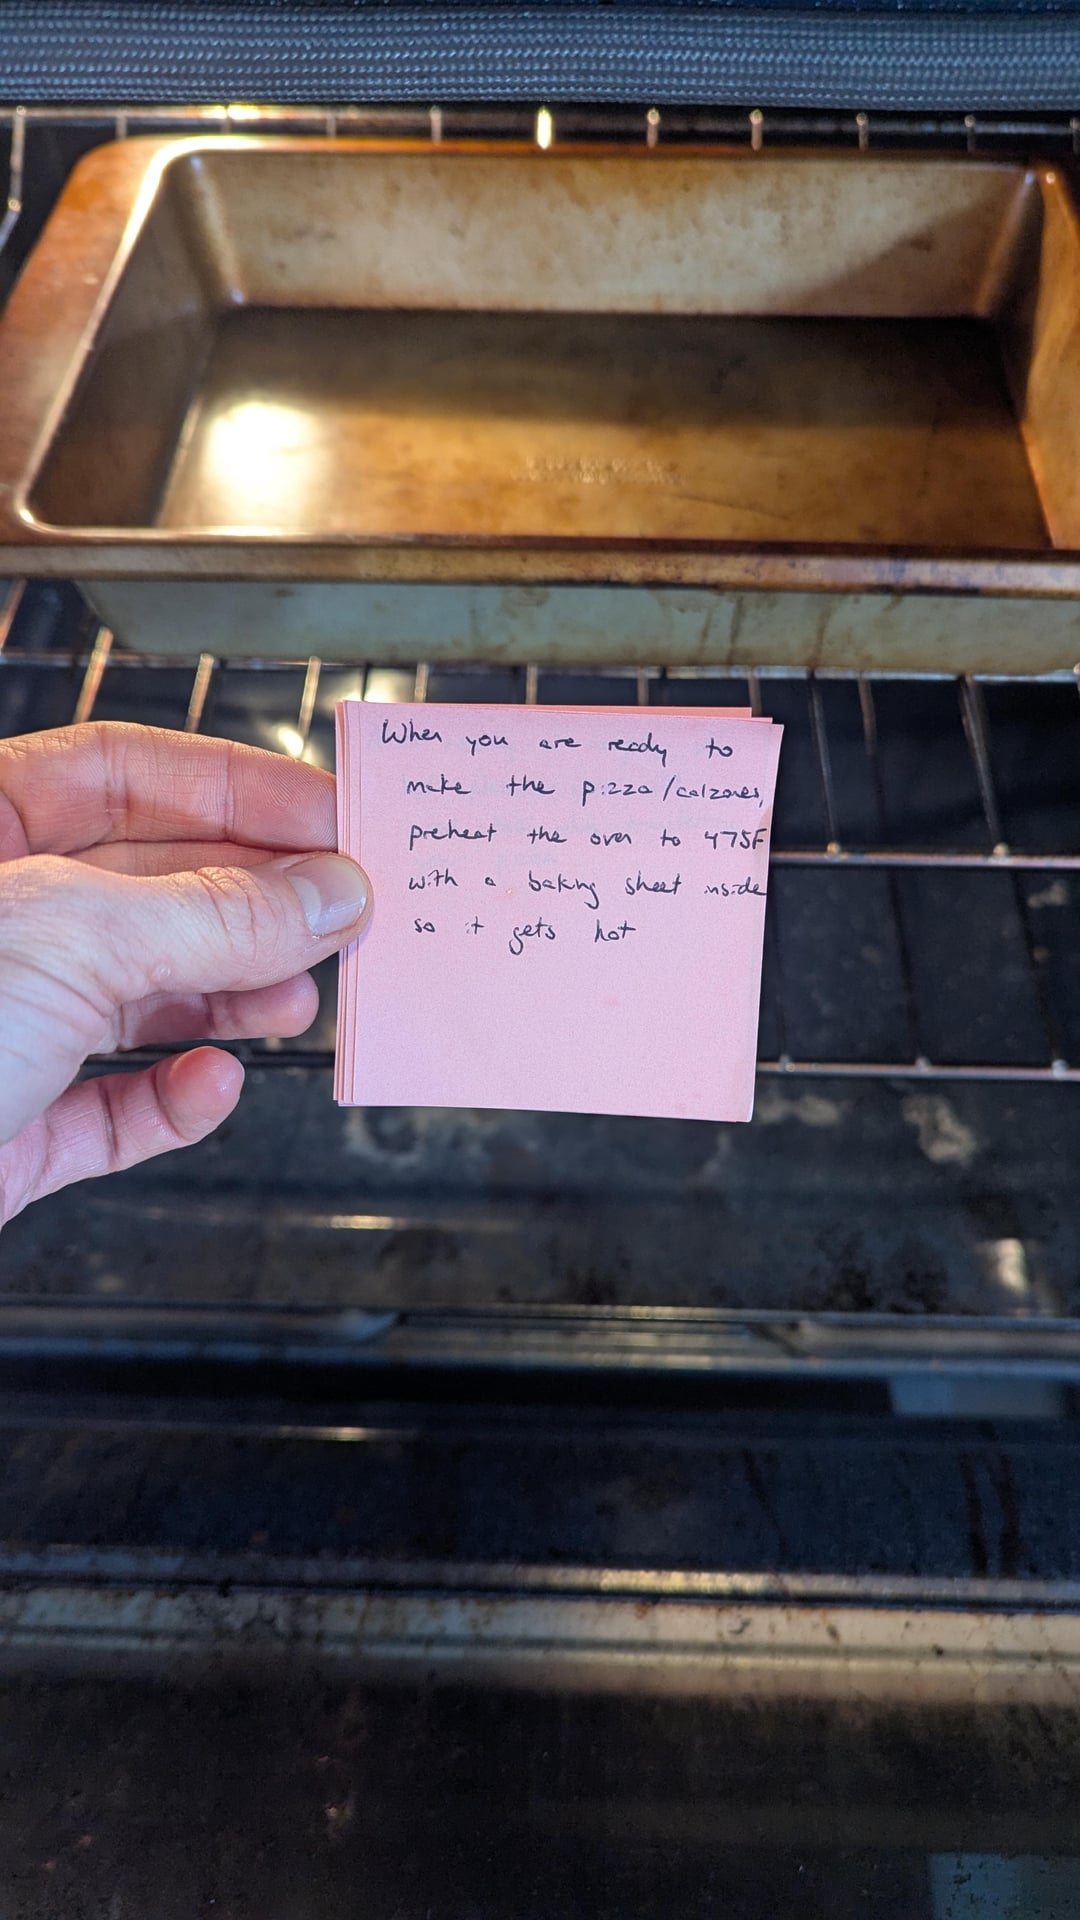 When you are ready to
make the pizza/calzones,
preheat the oven to 475F
with a baking sheet inside
so it gets hot